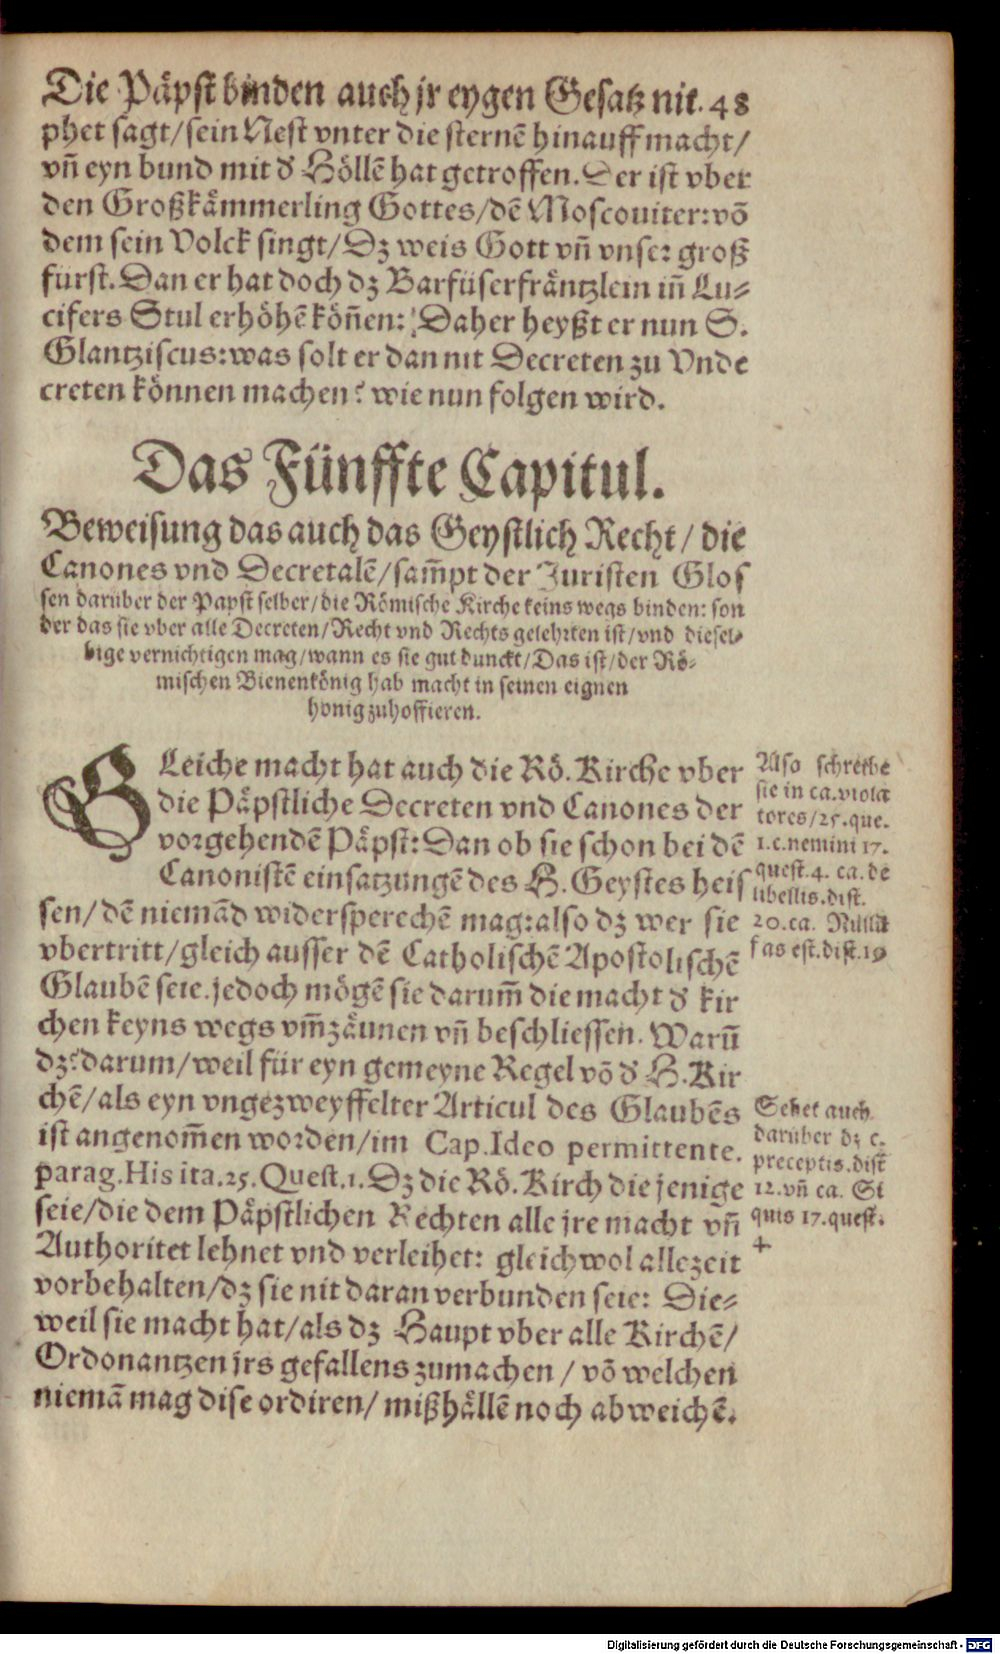 Die Päpst binden auch jr eygen Gesatz nit. 48
phet sagt/sein Nest vnter die sternē hinauff macht/
vñ eyn bund mit d̕ Höllē hat getroffen. Der ist vber
den Großkämmerling Gottes/dē Moscouiter: vō
dem sein Volck singt/Dz weis Gott vñ vnser groß
fürst. Dan er hat doch dz Barfüserfräntzlein iñ Lu⸗
cifers Stul erhöhē köñen: Daher heyßt er nun S.
Glantziscus: was solt er dan nit Decreten zu Vnde
creten können machen? wie nun folgen wird.
Das Fünffte Capitul.
Beweisung das auch das Geystlich Recht/die
Canones vnd Decretalē/sam̃pt der Juristen Glos
sen darüber der Papst selber/die Römische Kirche keins wegs binden: son
der das sie vber alle Decreten/Recht vnd Rechts gelehrten ist/vnd diesel⸗
bige vernichtigen mag/wann es sie gut dunckt/Das ist/der Rö⸗
mischen Bienenkönig hab macht in seinen eignen
honig zuhoffieren.
GLeiche macht hat auch die Rö. Kirche vber
die Päpstliche Decreten vnd Canones der
vorgehendē Päpst: Dan ob sie schon bei dē
Canonistē einsatzungē des H. Geystes heis
sen/dē niemād widersperechē mag: also dz wer sie
vbertritt/gleich ausser dē Catholischē Apostolischē
Glaubē seie. jedoch mögē sie darum̃ die macht d̕ kir
chen keyns wegs vm̃zäunen vñ beschliessen. Warū
dz? darum/weil für eyn gemeyne Regel vō d̕ H. Kir
chē/als eyn vngezweyffelter Articul des Glaubēs
ist angenom̃en worden/im Cap. Ideo permittente.
parag. His ita. 25. Quest. 1. Dz die Rö. Kirch die jenige
seie/die dem Päpstlichen Rechten alle jre macht vñ
Authoritet lehnet vnd verleihet: gleichwol allezeit
vorbehalten/dz sie nit daran verbunden seie: Die⸗
weil sie macht hat/als dz Haupt vber alle Kirchē/
Ordonantzen jrs gefallens zumachen/vō welchen
niemā mag dise ordiren/mißhällē noch abweichē.
Also schreibe
sie in ca. viola
tores/25. que.
1. c. nemini 17.
quest. 4. ca. de
libellis. dist.
20. ca. Nulli
fas est. dist. 19
Sehet auch
darüber dz c.
preceptis. dist
12. vñ ca. Si
quis 17. quest.
4
Digitalisierung gefördert durch die Deutsche Forschungsgemeinschaft - DFG